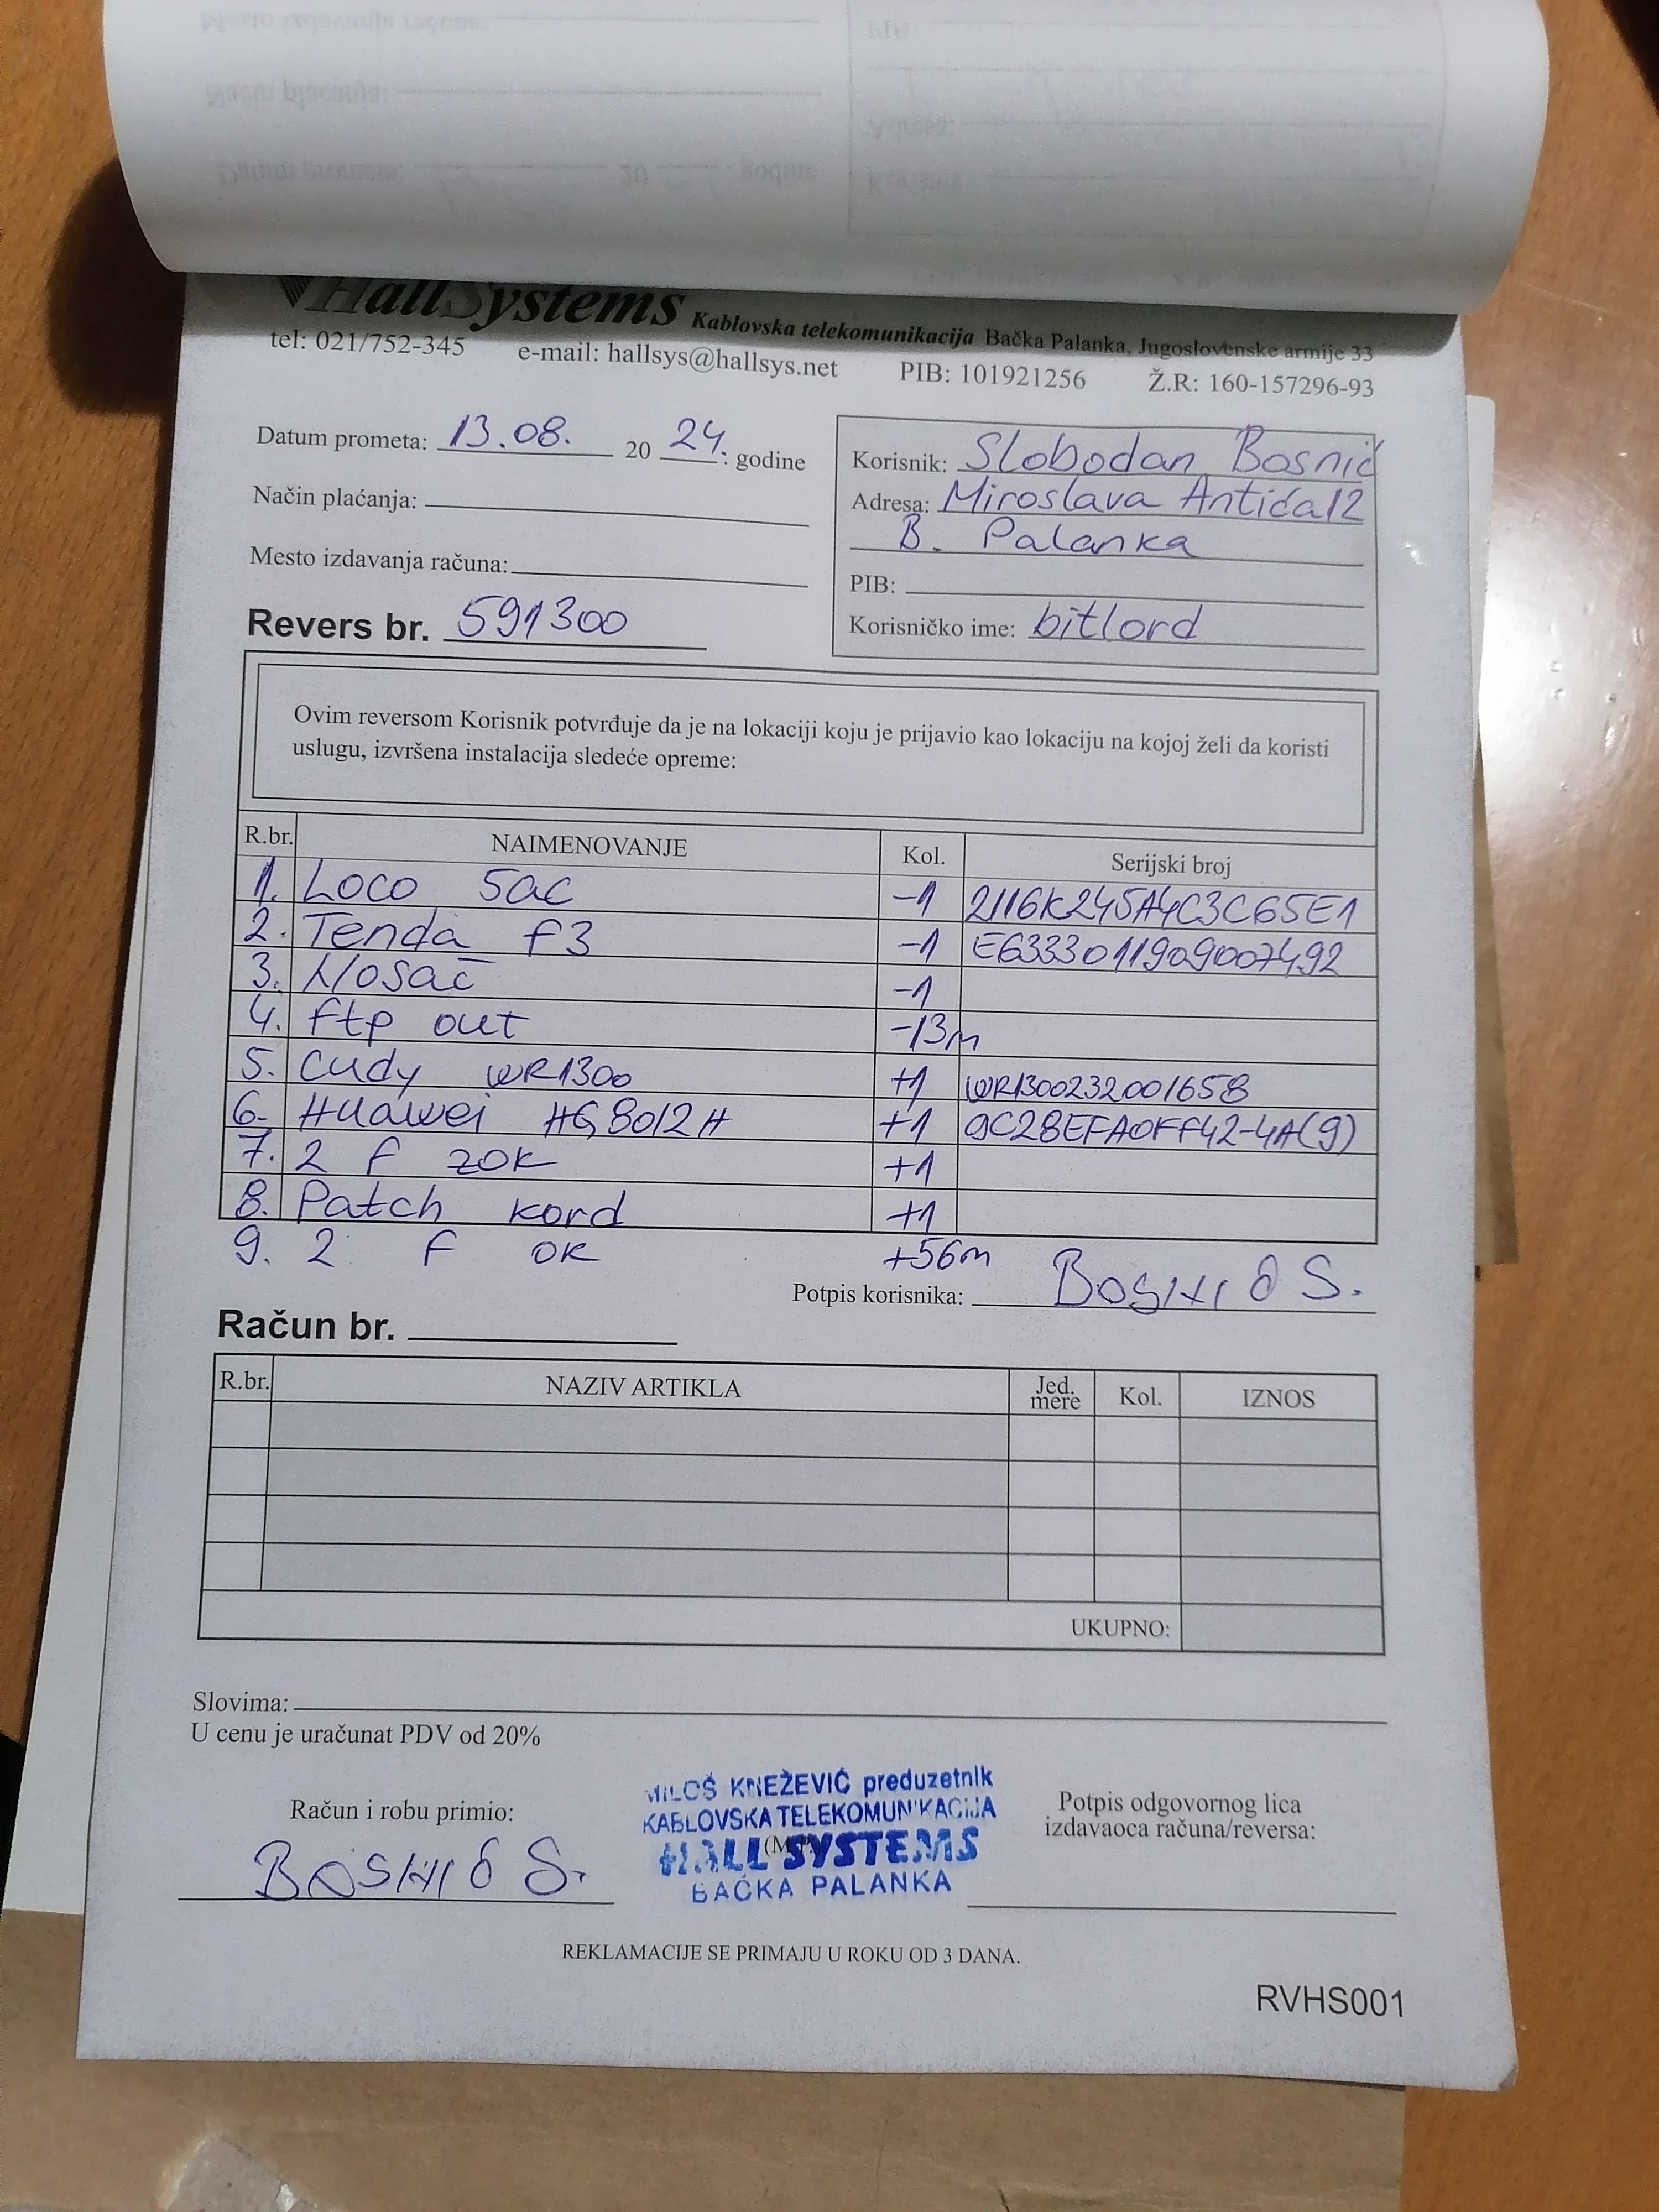 HallSystems Kablovska telekomunikacija Bačka Palanka, Jugoslovenske armije 33
tel: 021/752-345 e-mail: hallsys@hallsys.net PIB: 101921256 Ž.R: 160-157296-93
Datum prometa: 13.08. 20 24. godine
Način plaćanja:
Mesto izdavanja računa:
Revers br. 591300
Korisnik: Slobodan Bosnić
Adresa: Miroslava Antića 12
B. Palanka
PIB:
Korisničko ime: bitlord
Ovim reversom Korisnik potvrđuje da je na lokaciji koju je prijavio kao lokaciju na kojoj želi da koristi
uslugu, izvršena instalacija sledeće opreme:
R.br. NAIMENOVANJE Kol. Serijski broj
1. Loco 5ac -1 2116K245A4C3C65E1
2. Tenda f3 -1 E6333011909007492
3. Nosač -1
4. ftp out -13m
5. Cudy WR1300 +1 WR1300232001658
6- Huawei HG8012H +1 9C28EFA0FF42-4A(9)
7. 2 f zok +1
8. Patch kord +1
9. 2 f ok +56m
Potpis korisnika: Bosnić S.
Račun br.
R.br. NAZIV ARTIKLA Jed. mere Kol. IZNOS
UKUPNO:
Slovima:
U cenu je uračunat PDV od 20%
Račun i robu primio:
Bosnić S.
MILOŠ KNEŽEVIĆ preduzetnik
KABLOVSKA TELEKOMUNIKACIJA
HALL SYSTEMS
BAČKA PALANKA
Potpis odgovornog lica
izdavaoca računa/reversa:
REKLAMACIJE SE PRIMAJU U ROKU OD 3 DANA.
RVHS001